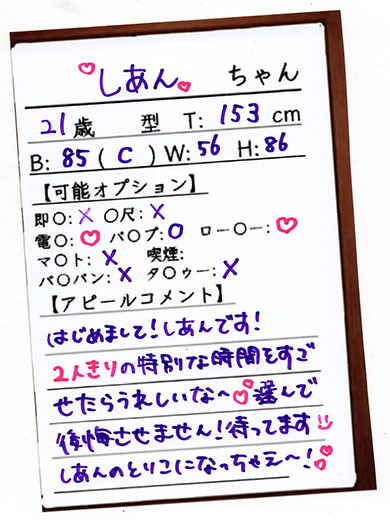 しあん ちゃん
21歳 型 T: 153 cm
B: 85 ( C ) W: 56 H: 86
【可能オプション】
即〇: × 〇尺: ×
電〇: ♡ バ〇ブ: O ロー〇ー: ♡
マ〇ト: × 喫煙:
パ〇パン: × タ〇ゥー: ×
【アピールコメント】
はじめまして!しあんです!
2人きりの特別な時間をすご
せたらうれしいな〜♡選んで
後悔させません!待ってます
しあんのとりこになっちゃえ〜!